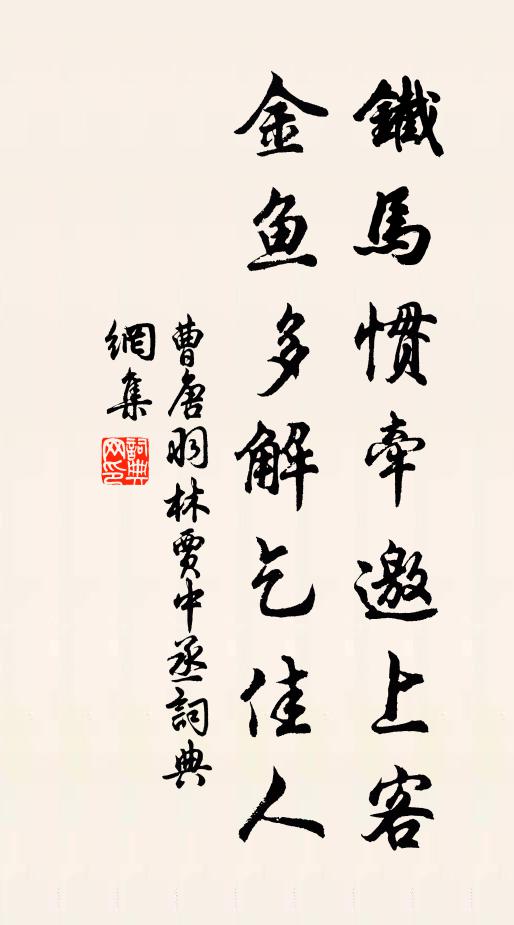 鐵馬慣牽邀上客
金鱼多解乞佳人
曹唐羽林贾中丞詞典
網集
詞典
网印